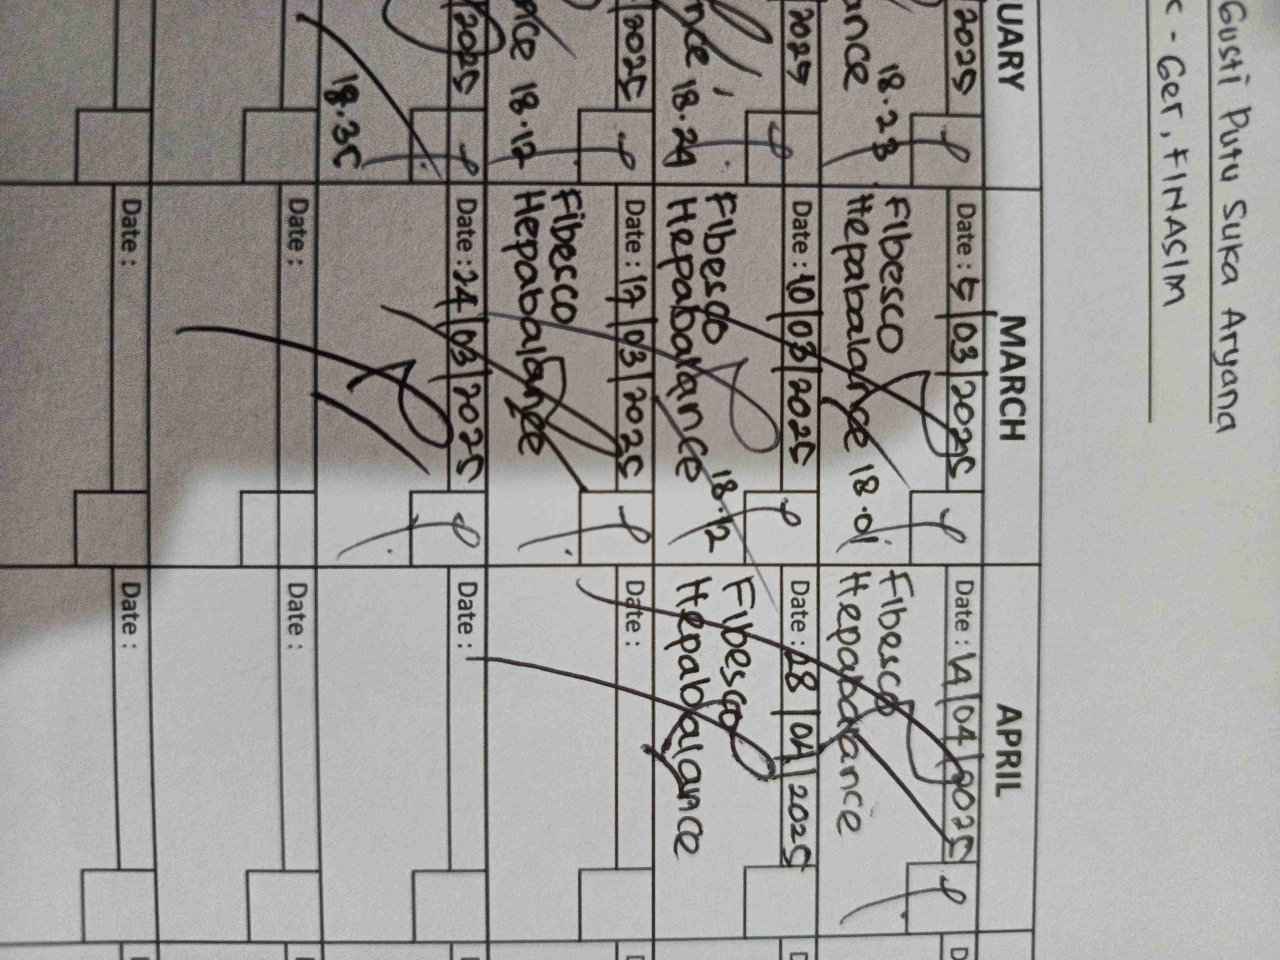 Gusti Putu Suka Aryana
- Ger, FINASIM
UARY
MARCH
APRIL
2025
18.23
ance
Date : 5 | 03 | 2025
Fibesco
Hepabalance 18.01
Date : 14 | 04 | 2025
Fibesco
Hepabalance
2025
nce 18.24
Date : 10 | 03 | 2025
Fibesco
Hepabalance 18.12
Date : 28 | 04 | 2025
Fibesco
Hepabalance
2025
nce 18.12
Date : 17 | 03 | 2025
Fibesco
Hepabalance
Date :
2025
18.35
Date : 24 | 03 | 2025
Date :
Date :
Date :
Date :
Date :